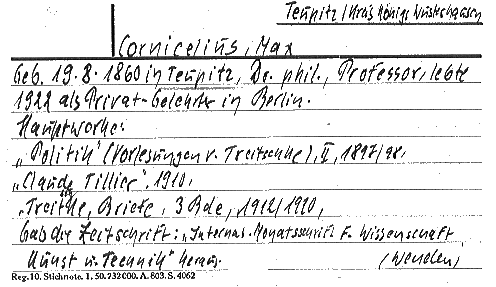 Teupitz / Kreis Königs Wusterhausen
Cornicelius, Max
Geb. 19.8.1860 in Teupitz, Dr. phil., Professor, lebte
1922 als Privat-Gelehrter in Berlin.
Hauptwerke:
„Politik" (Vorlesungen v. Treitschke), II, 1897/98,
„Claude Tillier", 1910,
Briefe, 3 Bde, 1912/1920,
Gab die Zeitschrift: „Internat. Monatsschrift f. Wissenschaft
Kunst u. Technik" heraus. (Wenden)
Reg. 10. Stichnote. 1. 50. 732 000. A. 803. S. 4062